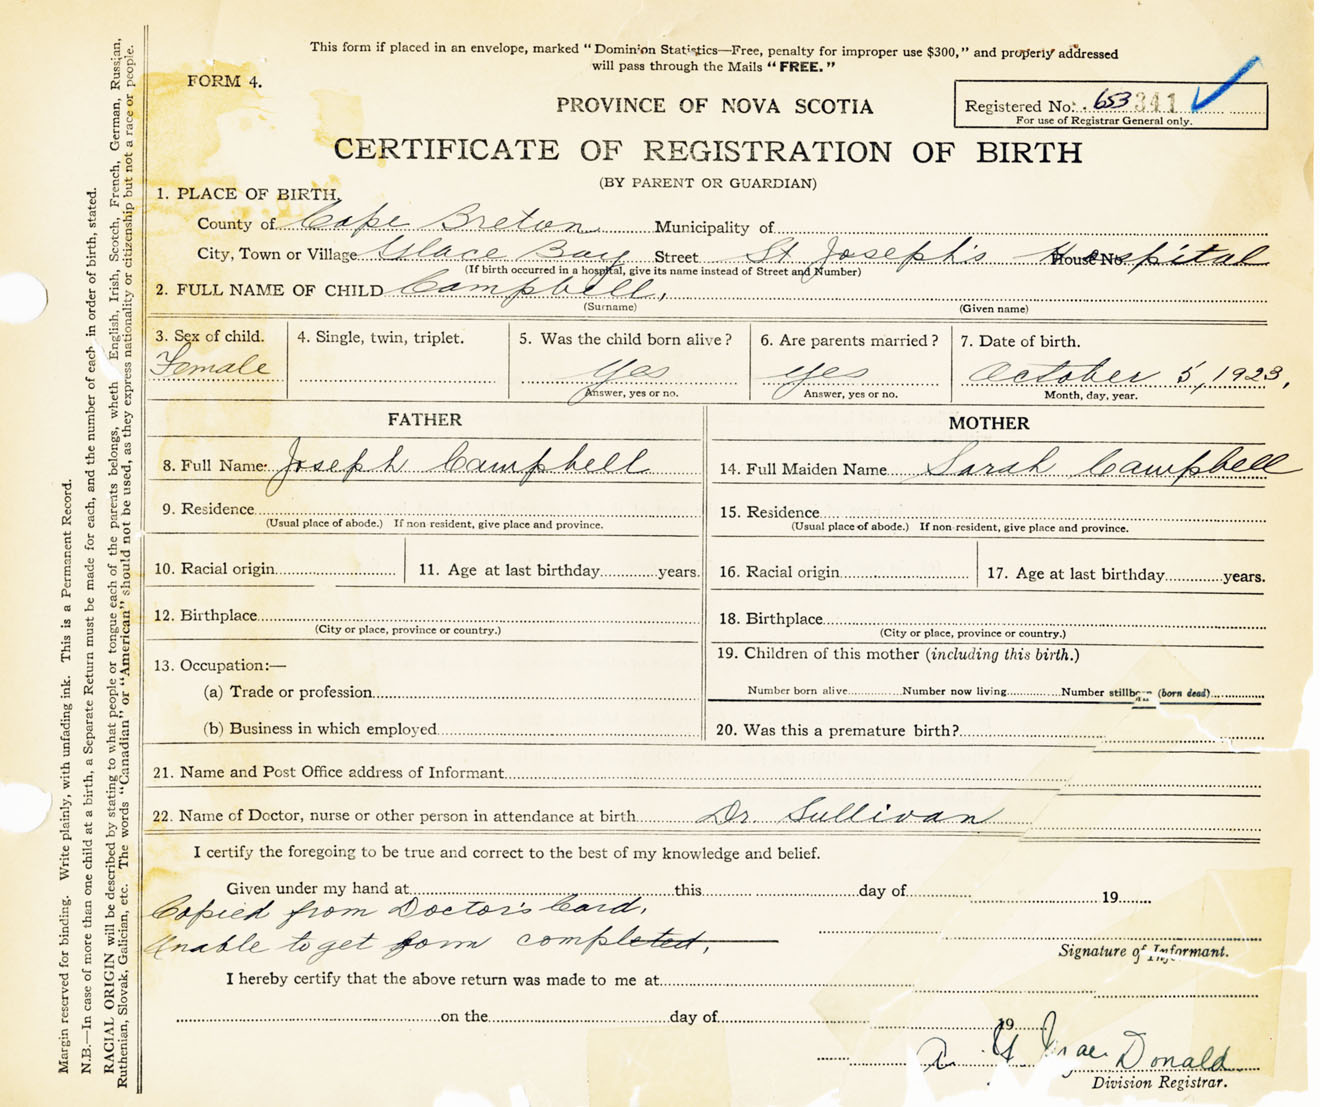 This form if placed in an envelope, marked "Dominion Statistics—Free, penalty for improper use $300," and properly addressed
will pass through the Mails "FREE."
FORM 4.
PROVINCE OF NOVA SCOTIA
Registered No. 653 341
For use of Registrar General only.
CERTIFICATE OF REGISTRATION OF BIRTH
(BY PARENT OR GUARDIAN)
1. PLACE OF BIRTH,
County of Cape Breton Municipality of
City, Town or Village Glace Bay Street St Joseph's Hospital House No.
(If birth occurred in a hospital, give its name instead of Street and Number)
2. FULL NAME OF CHILD Campbell,
(Surname) (Given name)
3. Sex of child. 4. Single, twin, triplet. 5. Was the child born alive? 6. Are parents married? 7. Date of birth.
Female yes yes October 5, 1923,
Answer, yes or no. Answer, yes or no. Month, day, year.
FATHER MOTHER
8. Full Name: Joseph Campbell 14. Full Maiden Name Sarah Campbell
9. Residence 15. Residence
(Usual place of abode.) If non resident, give place and province. (Usual place of abode.) If non-resident, give place and province.
10. Racial origin 11. Age at last birthday years. 16. Racial origin 17. Age at last birthday years.
12. Birthplace 18. Birthplace
(City or place, province or country.) (City or place, province or country.)
13. Occupation:— 19. Children of this mother (including this birth.)
(a) Trade or profession Number born alive Number now living Number stillborn (born dead)
(b) Business in which employed 20. Was this a premature birth?
21. Name and Post Office address of Informant
22. Name of Doctor, nurse or other person in attendance at birth Dr. Sullivan
I certify the foregoing to be true and correct to the best of my knowledge and belief.
Given under my hand at this day of 19
Copied from Doctor's Card,
Unable to get form completed,
Signature of Informant.
I hereby certify that the above return was made to me at
on the day of 19
Donald
Division Registrar.
Margin reserved for binding. Write plainly, with unfading ink. This is a Permanent Record.
N.B.—In case of more than one child at a birth, a Separate Return must be made for each, and the number of each in order of birth, stated.
RACIAL ORIGIN will be described by stating to what people or tongue each of the parents belongs, wheth English, Irish, Scotch, French, German, Russian,
Ruthenian, Slovak, Galician, etc. The words "Canadian" or "American" should not be used, as they express nationality or citizenship but not a race or people.